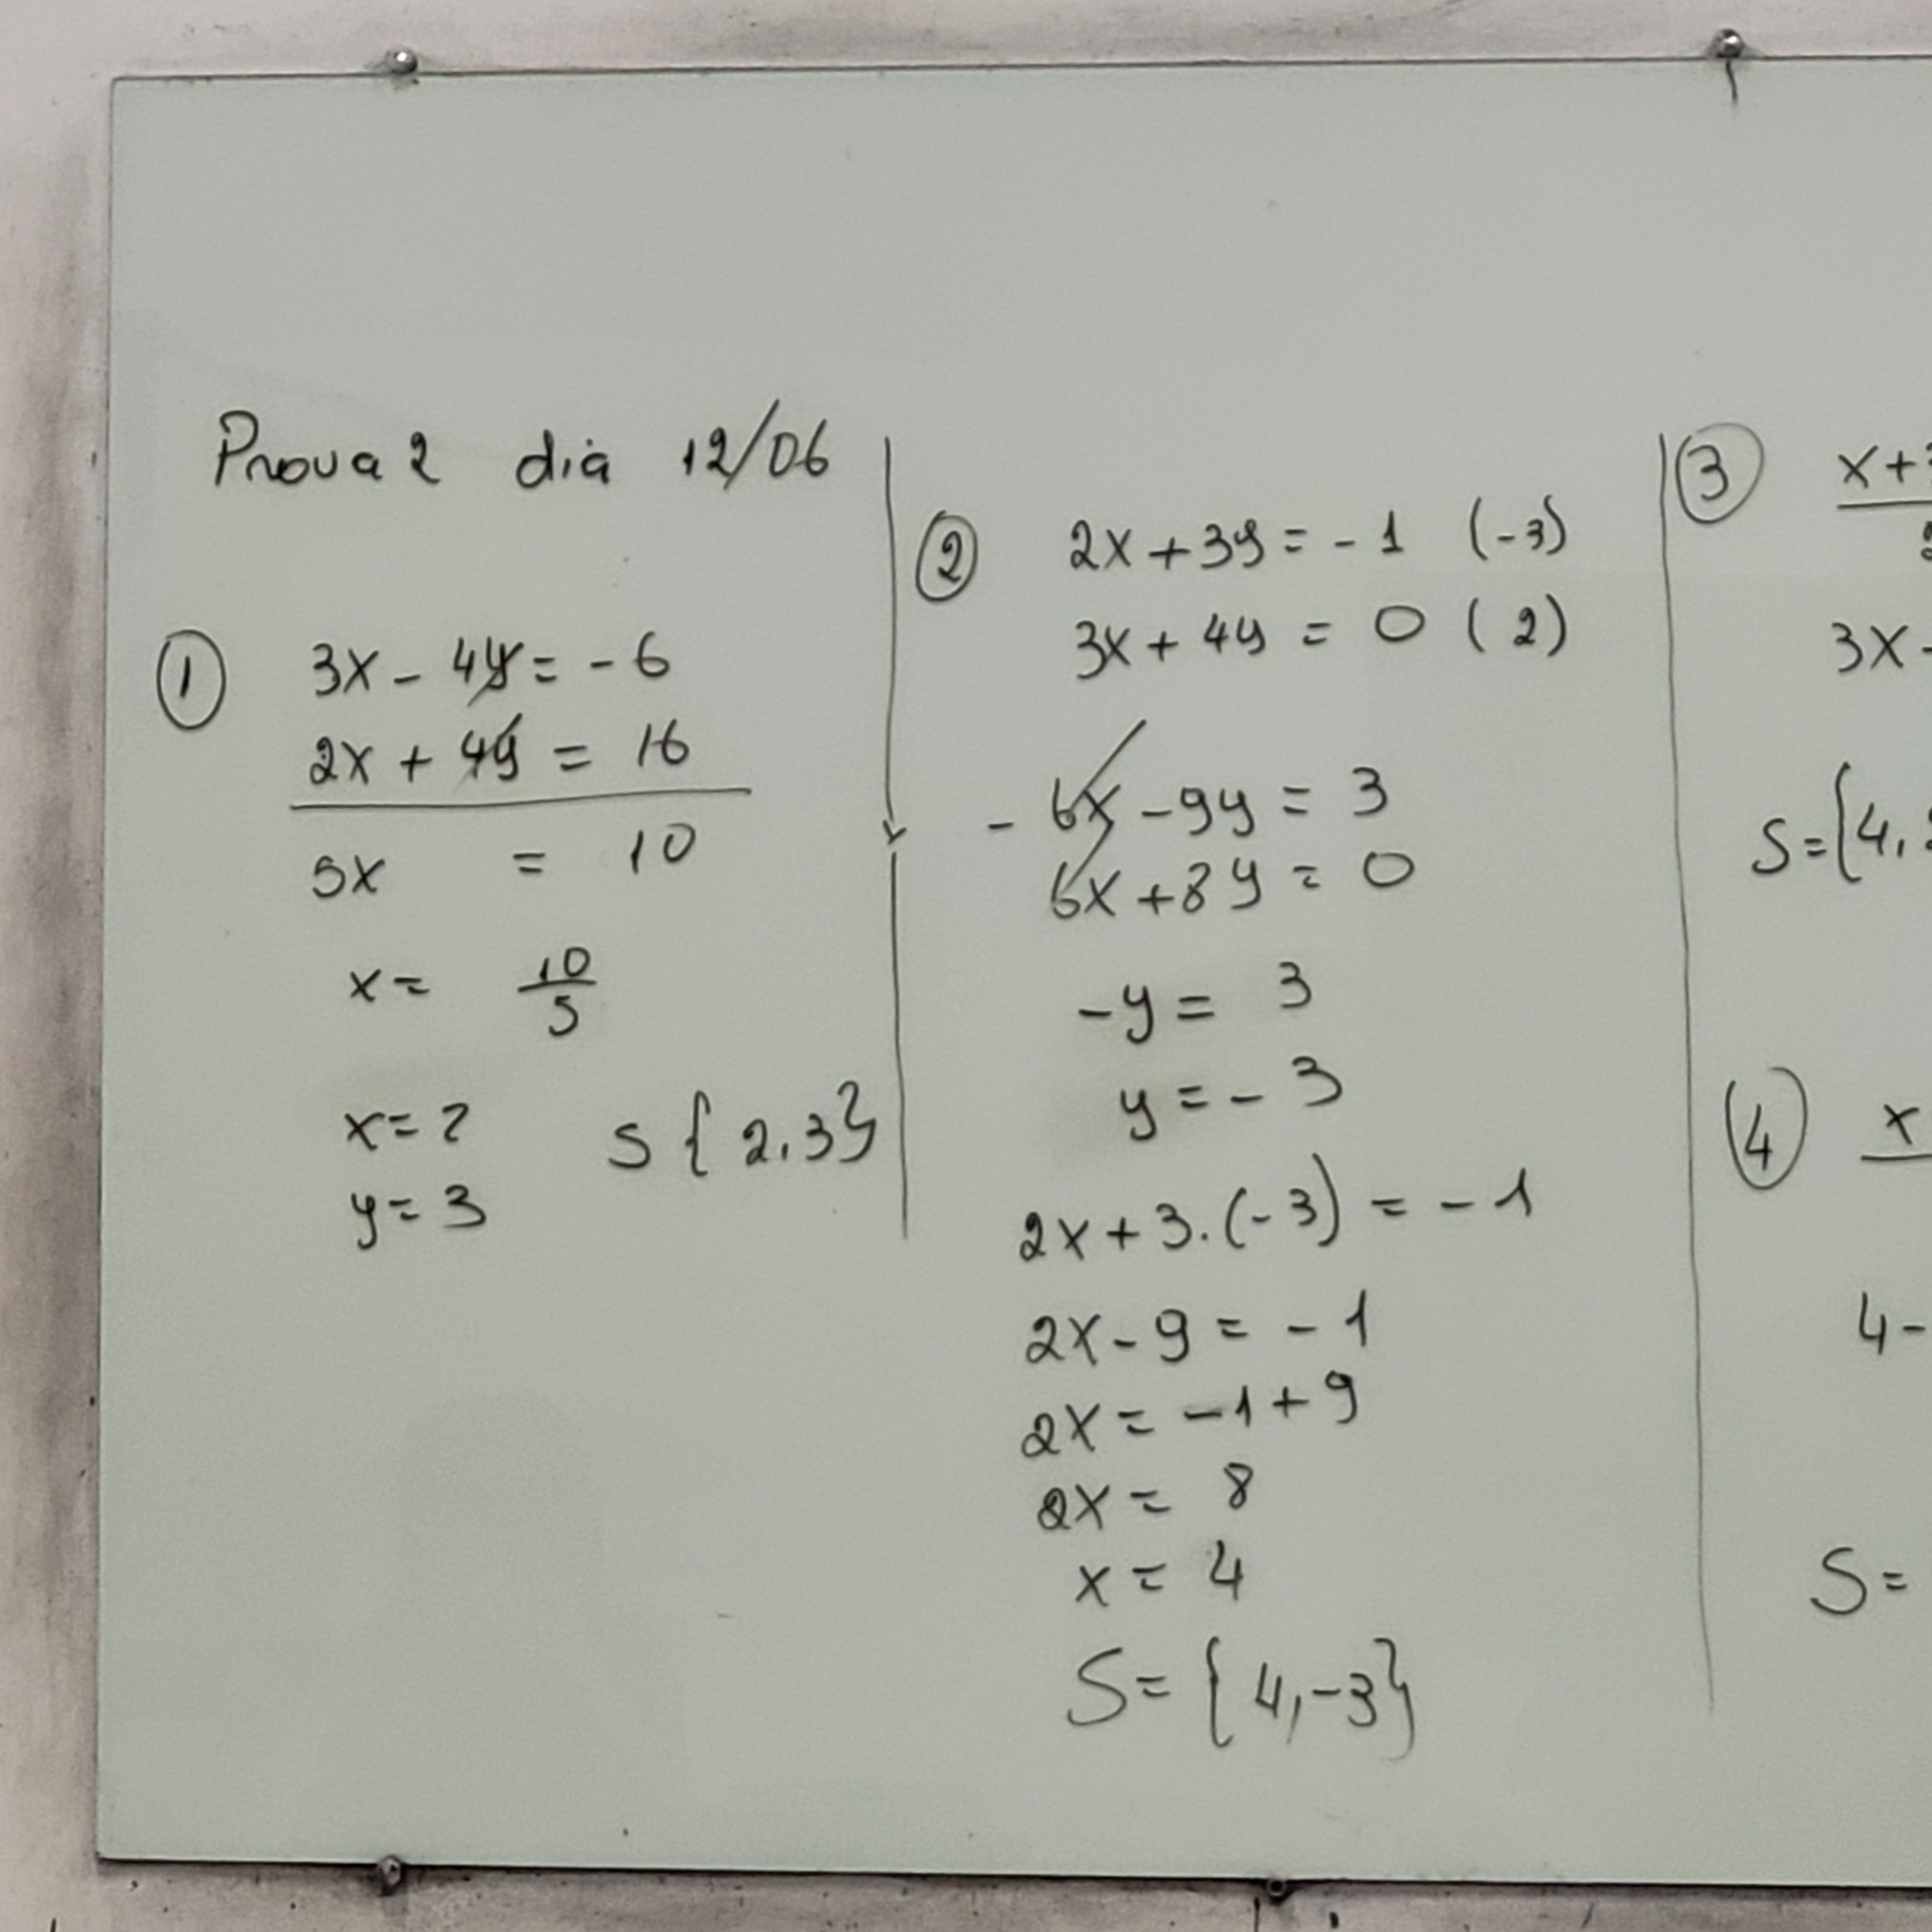 Prova 2 dia 12/06
① 3x - 4y = - 6
2x + 4y = 16
5x = 10
x = 10/5
x = 2
y = 3
S { 2, 3 }
② 2x + 3y = - 1 (-3)
3x + 4y = 0 ( 2 )
- 6x - 9y = 3
6x + 8y = 0
-y = 3
y = - 3
2x + 3.(-3) = - 1
2x - 9 = - 1
2x = -1 + 9
2x = 8
x = 4
S = { 4, -3 }
③ x +
3x -
S = { 4,
④ x
4 -
S =